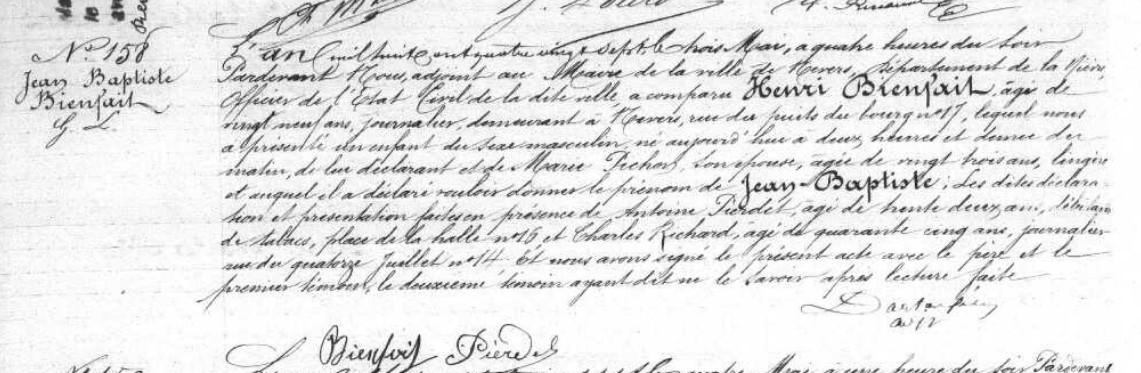 N° 158
Jean Baptiste
Bienfait
G. L.
L'an mil huit cent quatre vingt sept le trois Mai, a quatre heures du soir
Pardevant Nous, adjoint au Maire de la ville de Nevers, département de la Nièvre
Officier de l'Etat Civil de la dite ville a comparu Henri Bienfait, âgé de
vingt neuf ans, journalier, demeurant à Nevers, rue du puits du bourg n° 17, lequel nous
a présenté un enfant du sexe masculin, né aujourd'hui à deux heures et demie du
matin, de lui déclarant et de Marie Pichon, son épouse, agée de vingt trois ans, lingère
et auquel il a déclaré vouloir donner le prénom de Jean-Baptiste ; Les dites déclara-
tion et présentation faites en présence de Antoine Pierdet, agé de trente deux ans, débitant
de tabacs, place de la halle n° 16 et Charles Richard, agé de quarante cinq ans, journalier
rue du quatorze Juillet n° 14. Et nous avons signé le présent acte avec le père et le
premier témoin, le deuxième témoin ayant dit ne le savoir après lecture faite
Bienfait Pierdet
Mai à une heure du soir Pardevant